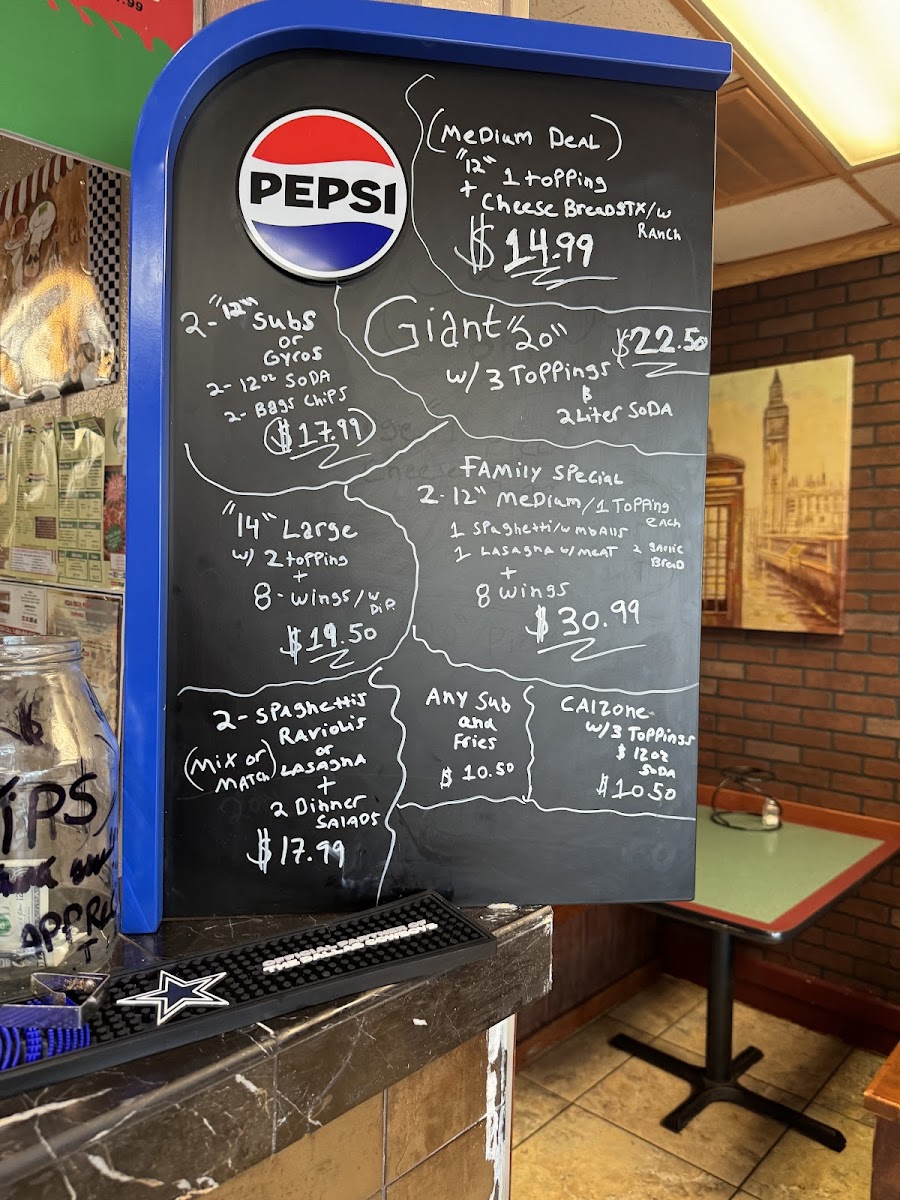 .99
PEPSI
(MEDIUM DEAL)
"12" 1 TOPPING
+ CHEESE BREADSTX/W
RANCH
$14.99
2-"12" SUBS
OR
GYROS
2- 12oz SODA
2- BAGS CHIPS
$17.99
GIANT "20"
$22.50
W/ 3 TOPPINGS
&
2 LITER SODA
"14" LARGE
W/ 2 TOPPING
+
8 - WINGS/W
DIP.
$19.50
FAMILY SPECIAL
2-12" MEDIUM/1 TOPPING
EACH
1 SPAGHETTI/W MBALLS
1 LASAGNA W/MEAT
2 GARLIC
BREAD
+
8 WINGS
$30.99
2-SPAGHETTIS
RAVIOLIS
OR
(MIX OR
MATCH)
LASAGNA
+
2 DINNER
SALADS
$17.99
ANY SUB
and
FRIES
$10.50
CALZONE
W/3 TOPPINGS
$ 12oz
SODA
$10.50
TIPS